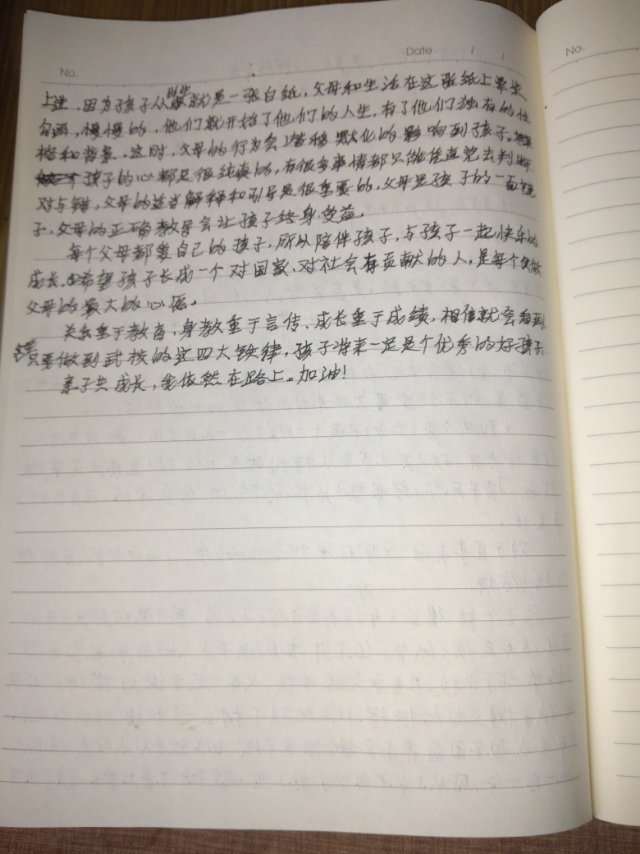 No.
Date / /
No.
上进,因为孩子从出生就是一张白纸,父母和生活在这张纸上
勾画,慢慢的,他们就开始了他们的人生,有了他们独有的性
格和背景。这时,父母的行为会潜移默化的影响到孩子。
孩子的心都是很纯真的,有很多事情都只能凭直觉去判断
对与错,父母的适当解释和引导是很重要的,父母是孩子的一面镜
子,父母的正确教导会让孩子终身受益。
每个父母都爱自己的孩子,所以陪伴孩子,与孩子一起快乐的
成长。希望孩子长成一个对国家,对社会有贡献的人,是每个做
父母的最大的心愿。
关系重于教育,身教重于言传、成长重于成绩,相信就会看到
只要做到武校的这四大铁律,孩子将来一定是个优秀的好孩子
亲子共成长,我依然在路上。加油!